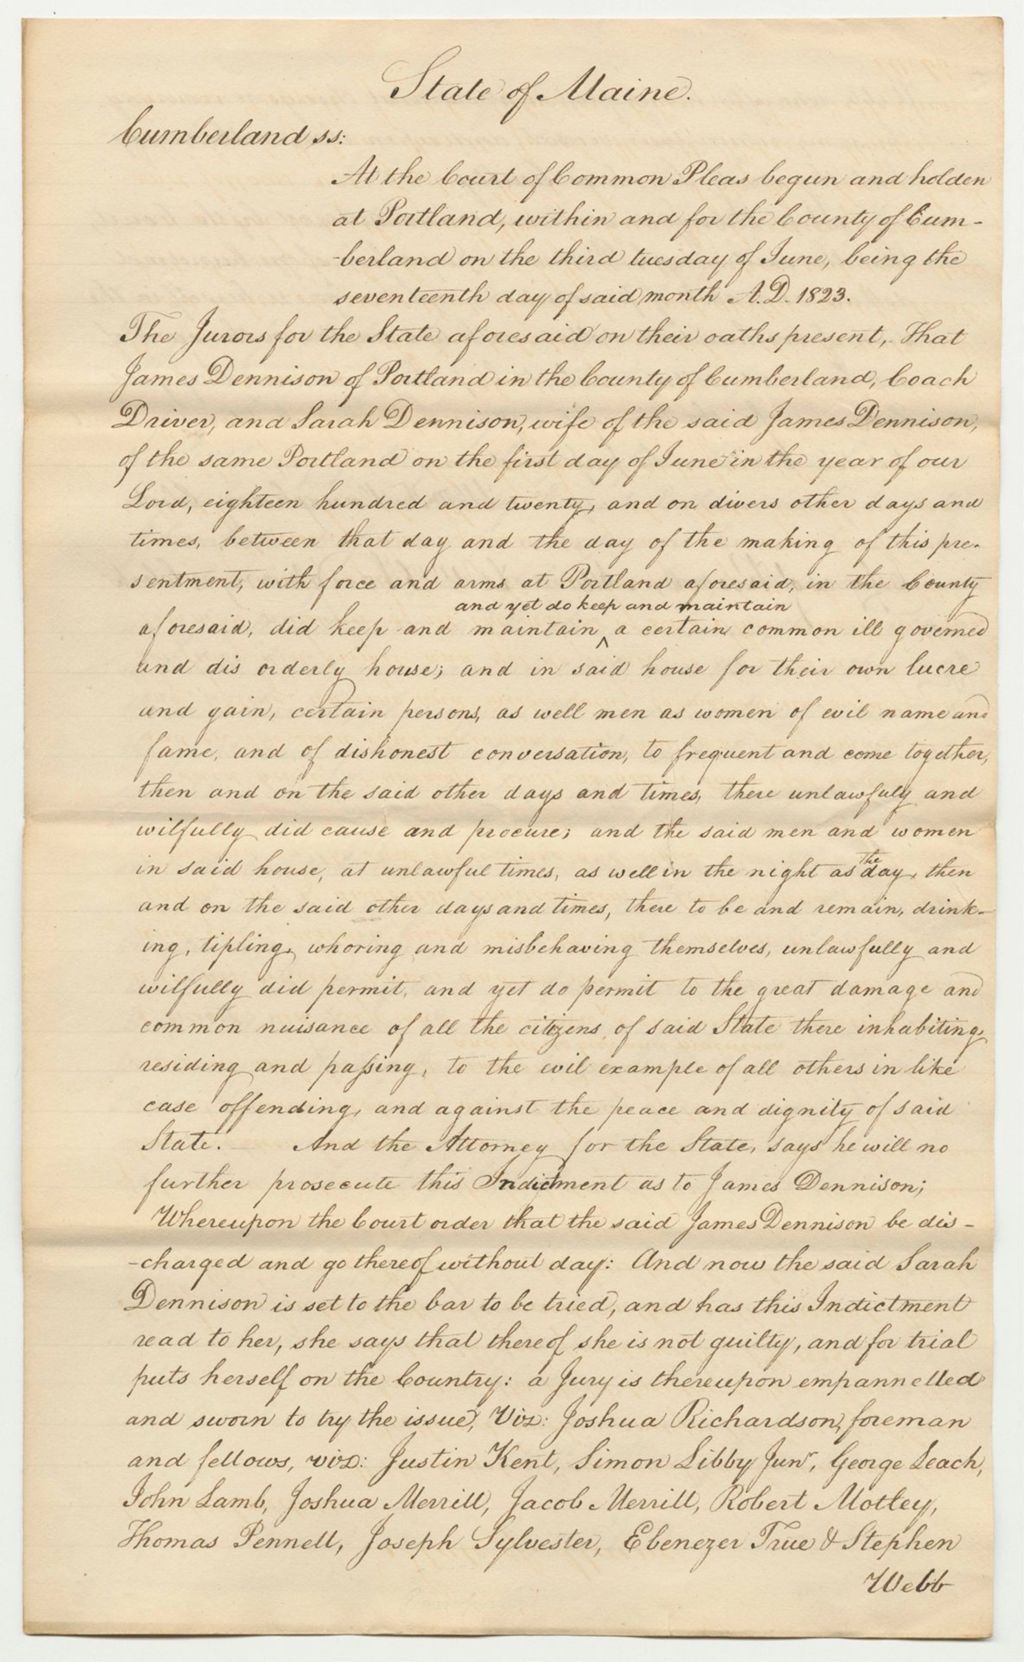 State of Maine.
Cumberland ss:
At the Court of Common Pleas begun and holden
at Portland, within and for the County of Cum-
-berland on the third tuesday of June, being the
seventeenth day of said month A.D. 1823.
The Jurors for the State aforesaid on their oaths present, That
James Dennison of Portland in the County of Cumberland, Coach
Driver, and Sarah Dennison, wife of the said James Dennison,
of the same Portland on the first day of June in the year of our
Lord, eighteen hundred and twenty, and on divers other days and
times, between that day and the day of the making of this pre-
sentment, with force and arms at Portland aforesaid, in the County
and yet do keep and maintain
aforesaid, did keep and maintain ^ a certain common ill governed
and dis orderly house; and in said house for their own lucre
and gain, certain persons, as well men as women of evil name and
fame, and of dishonest conversation, to frequent and come together,
then and on the said other days and times, there unlawfuly and
wilfully did cause and procure; and the said men and women
in said house, at unlawful times, as well in the night as the day, then
and on the said other days and times, there to be and remain, drink-
ing, tipling, whoring and misbehaving themselves, unlawfully and
wilfully did permit, and yet do permit to the great damage and
common nuisance of all the citizens of said State there inhabiting,
residing and passing, to the evil example of all others in like
case offending, and against the peace and dignity of said
State. And the Attorney for the State, says he will no
further prosecute this Indictment as to James Dennison;
Whereupon the Court order that the said James Dennison be dis-
-charged and go thereof without day: And now the said Sarah
Dennison is set to the bar to be tried, and has this Indictment
read to her, she says that thereof she is not guilty, and for trial
puts herself on the Country: a Jury is thereupon empannelled
and sworn to try the issue, Viz: Joshua Richardson, foreman
and fellows, viz: Justin Kent, Simon Libby Junr, George Leach,
John Lamb, Joshua Merrill, Jacob Merrill, Robert Motley,
Thomas Pennell, Joseph Sylvester, Ebenezer True & Stephen
Webb